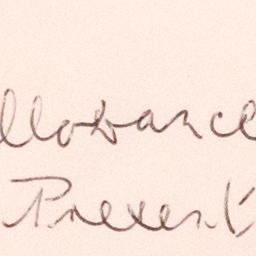 llowance
Present